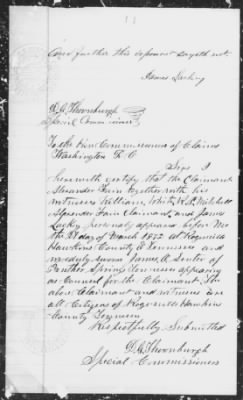 And further this deponent sayeth not.
James Lackey
D. G. Thornburgh
Special Commissioner
To the Hon Commissioners of Claims
Washington D. C.
Sirs I
herewith certify that the Claimant
Alexander Fain together with his
witnesses William White, W. P. Mitchell
Alexander Fain Claimant, and James
Lackey personaly appeared before me
the day of March 1872 at Rogersville
Hawkins County Tennessee and
was duly sworn James A. Senter of
Panther Springs Tennessee appearing
as Counsel for the Claimant. The
above Claimant and witnesses are
all Citizens of Rogersville Hawkins
County Tennessee
Respectfully Submitted
D. G. Thornburgh
Special Commissioner